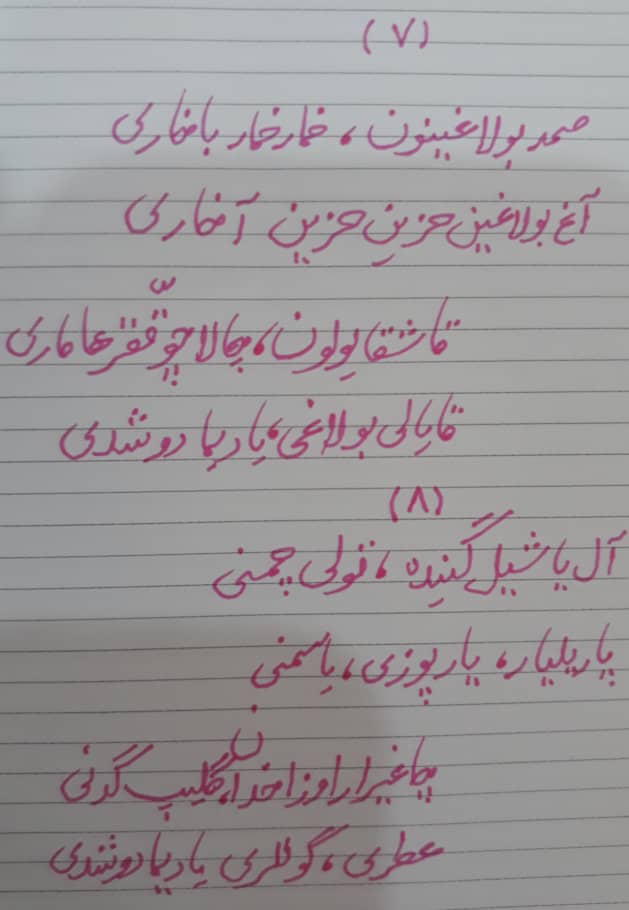 (۷)
صمد بولاغینون، خمار خمار باخاری
آغ بولاغین حزین حزین آخاری
قاشقا یولون، چالا چوققر هاماری
قایالی بولاغی، یادیما دوشدی
(۸)
آل یاشیل گئیده، قولی چمنی
پاریلیار، یارپوزی، یاسمنی
چاغیرار اوزاخدان، گلیب گدنی
عطری، گوللری یادیما دوشدی